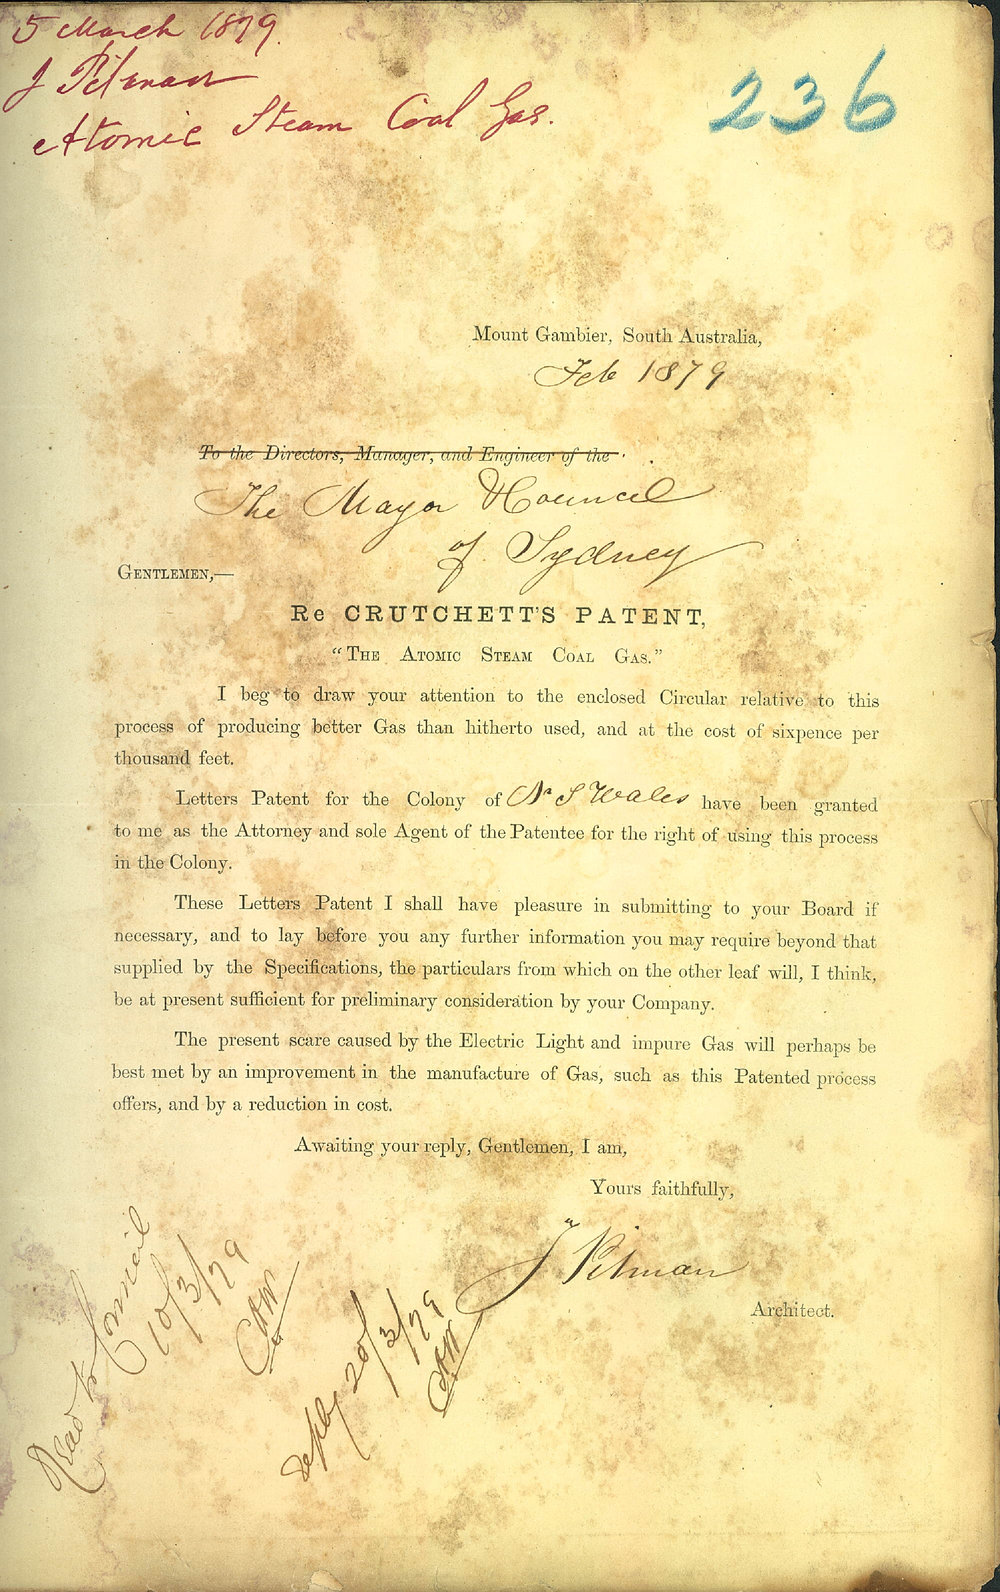 5 March 1879.
J Pitman
Atomic Steam Coal Gas.
236
Mount Gambier, South Australia,
Feb 1879
To the Directors, Manager, and Engineer of the
The Mayor & Council
of Sydney
GENTLEMEN,—
Re CRUTCHETT'S PATENT,
"THE ATOMIC STEAM COAL GAS."
I beg to draw your attention to the enclosed Circular relative to this
process of producing better Gas than hitherto used, and at the cost of sixpence per
thousand feet.
Letters Patent for the Colony of N S Wales have been granted
to me as the Attorney and sole Agent of the Patentee for the right of using this process
in the Colony.
These Letters Patent I shall have pleasure in submitting to your Board if
necessary, and to lay before you any further information you may require beyond that
supplied by the Specifications, the particulars from which on the other leaf will, I think,
be at present sufficient for preliminary consideration by your Company.
The present scare caused by the Electric Light and impure Gas will perhaps be
best met by an improvement in the manufacture of Gas, such as this Patented process
offers, and by a reduction in cost.
Awaiting your reply, Gentlemen, I am,
Yours faithfully,
J Pitman
Architect.
Read to Council
10/3/79
reply 20/3/79